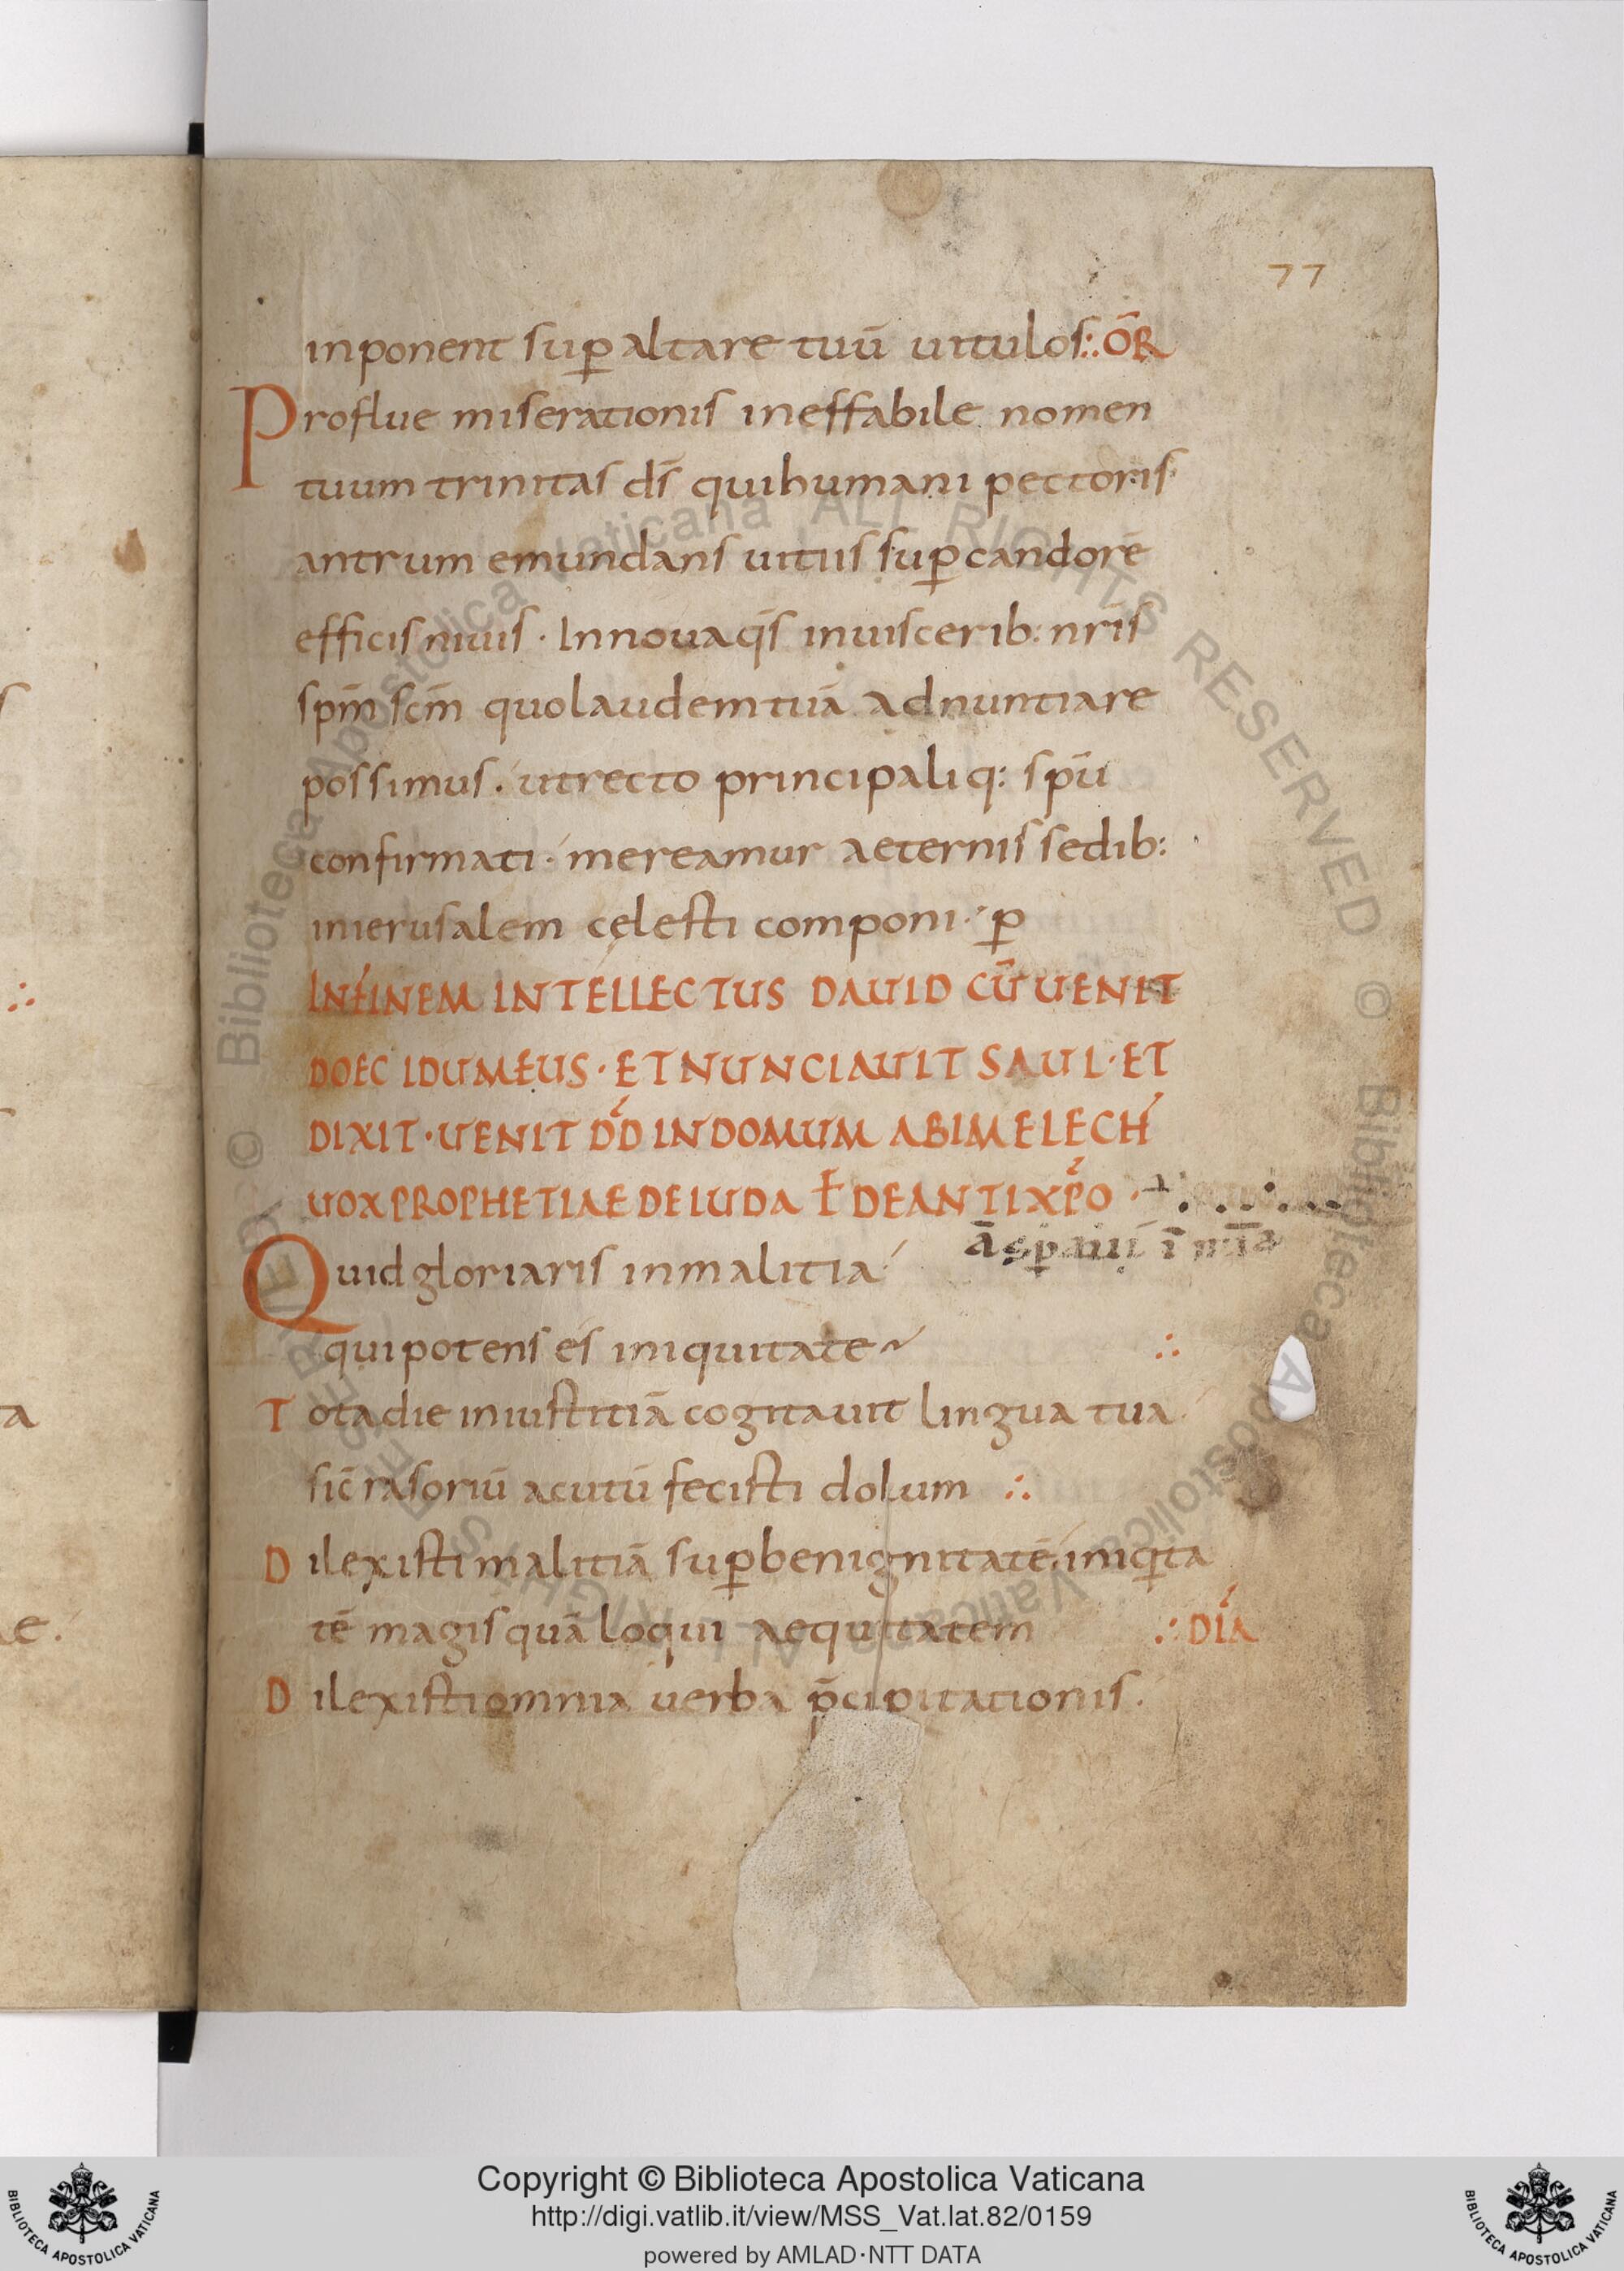 77
inponent sup altare tuū uitulos:. ŌR
Proflue miserationis ineffabile nomen
tuum trinitas d̄s qui humani pectoris
antrum emundans uitiis sup candorē
efficis niuis · Innoua q̄s in uiscerib: nr̄is
sp̄m sc̄m quo laudem tuā adnuntiare
possimus · ut recto principaliq: sp̄u
confirmati · mereamur aeternis sedib:
in ierusalem cęlesti componi · p
IN FINEM INTELLECTUS DAUID CŪ UENIT
DOEC IDUMEUS · ET NUNCIAUIT SAUL · ET
DIXIT · UENIT D̄D IN DOMUM ABIMELECH
UOX PROPHETIAE DE IUDA Ɫ DE ANTIXP̄O
ā sꝑaui ī mīa
Quid gloriaris in malitia
qui potens es iniquitate
Tota die iniustitiā cogitauit lingua tua
sic̄ rasoriū acutū fecisti dolum
Dilexisti malitiā sup benignitatē iniqita
tē magis quā loqui aequitatem :· DIĀ
Dilexisti omnia uerba p̄cipitationis.
Biblioteca Apostolica Vaticana ALL RIGHTS RESERVED ©
Copyright © Biblioteca Apostolica Vaticana
http://digi.vatlib.it/view/MSS_Vat.lat.82/0159
powered by AMLAD·NTT DATA
BIBLIOTECA APOSTOLICA VATICANA
BIBLIOTECA APOSTOLICA VATICANA